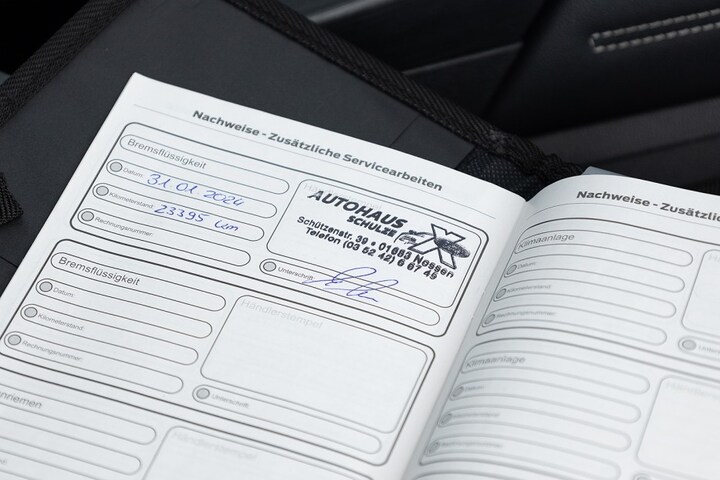 Nachweise - Zusätzliche Servicearbeiten
Bremsflüssigkeit
Datum: 31.01.2024
Kilometerstand: 23395 km
Rechnungsnummer:
AUTOHAUS
SCHULZE
Schützenstr. 39 • 01683 Nossen
Telefon (03 52 42) 6 67 49
Unterschrift:
Bremsflüssigkeit
Datum:
Kilometerstand:
Rechnungsnummer:
Händlerstempel
Unterschrift:
Händlerstempel
Nachweise - Zusätzlic
Klimaanlage
Datum:
Kilometerstand:
Rechnungsnummer:
Klimaanlage